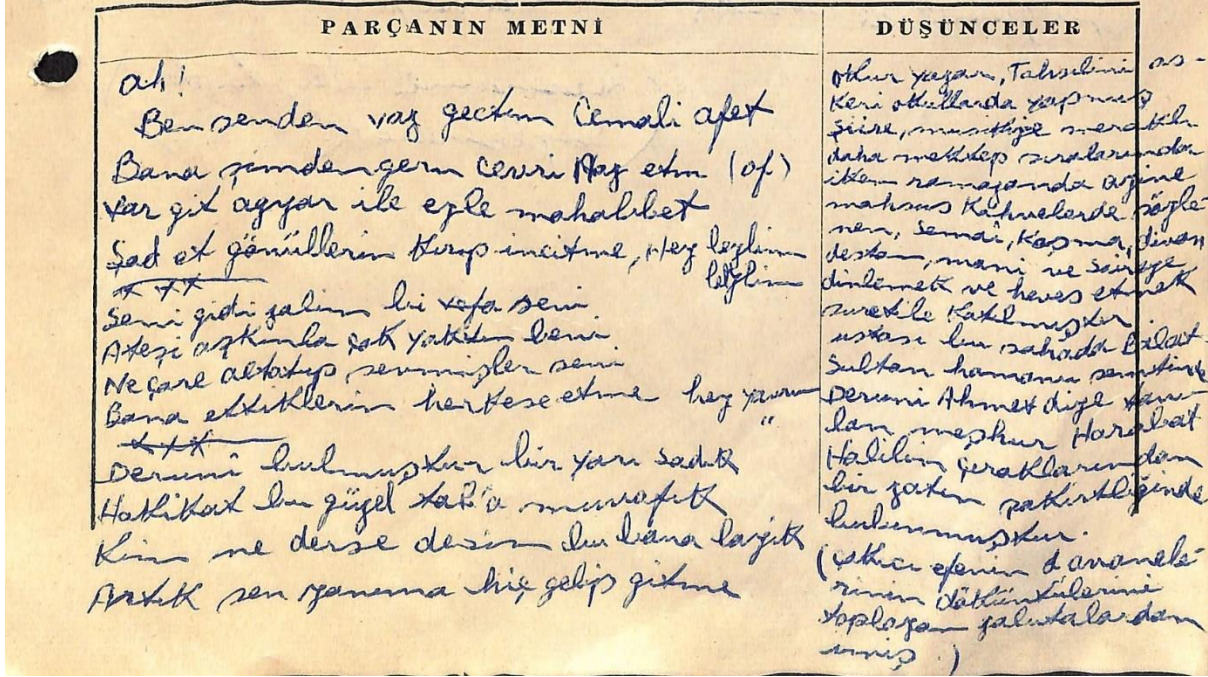 PARÇANIN METNİ
ah!
Ben senden vaz geçtim Cemali afet
Bana şimdengeru Cevri Naz etm (of)
Var git agyar ile eyle mahabbet
Şad et gönüllerin kırıp incitme, Hey leylim
leylim
Seni gidi zalim bi vefa seni
Ateşi aşkınla çok yaktın beni
Ne çare aldatıp sevmişler seni
Bana ettiklerin herkese etme hey yavrum
"
Derunî bulmuştur bir yarı sadık
Hakikat bu güzel tab'a muvafık
Kim ne derse desin bu bana layık
Artık sen yanıma hiç gelip gitme
DÜŞÜNCELER
Okur yazar, Tahsilini as-
keri okullarda yapmış
Şiire, musikiye meraklı
daha mektep sıralarında
iken ramazanda
mahsus Kahvelerde söyle-
nen, Semaî, Koşma, divan
destan, mani ve saireye
dinlemek ve heves etmek
suretile Katılmıştır
ustası bu sahada Balat
Sultan hamamı semtinde
Deruni Ahmet diye tanı-
lan meşhur Harabat
Halilin çıraklarından
bir zatın şakirtliğinde
bulunmuştur.
(Çakıcı efenin avanele-
rinin döküntülerini
toplayan zabıtalardan
imiş.)